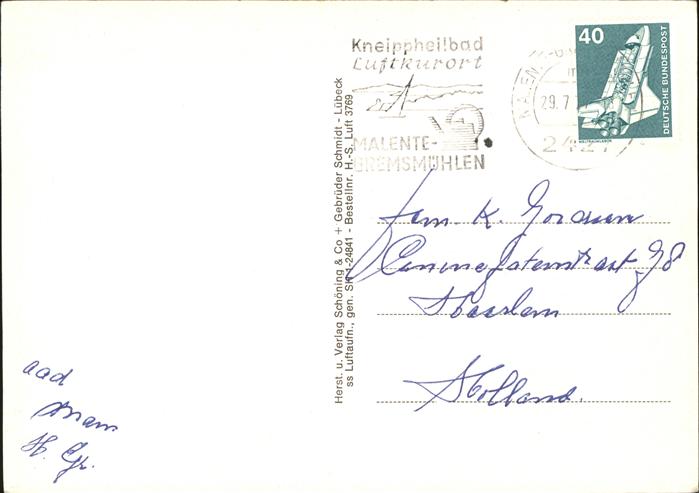 Kneippheilbad
Luftkurort
MALENTE-
GREMSMÜHLEN
MALEN
29.7
242
40
DEUTSCHE BUNDESPOST
WELTRAUMLABOR
Herst. u. Verlag Schöning & Co + Gebrüder Schmidt - Lübeck
ss Luftaufn., gen. SH 1-24841 - Bestellnr. H.-S. Luft 3769
Fam. K.
78
Haarlem
Holland.
aad
H. Gr.